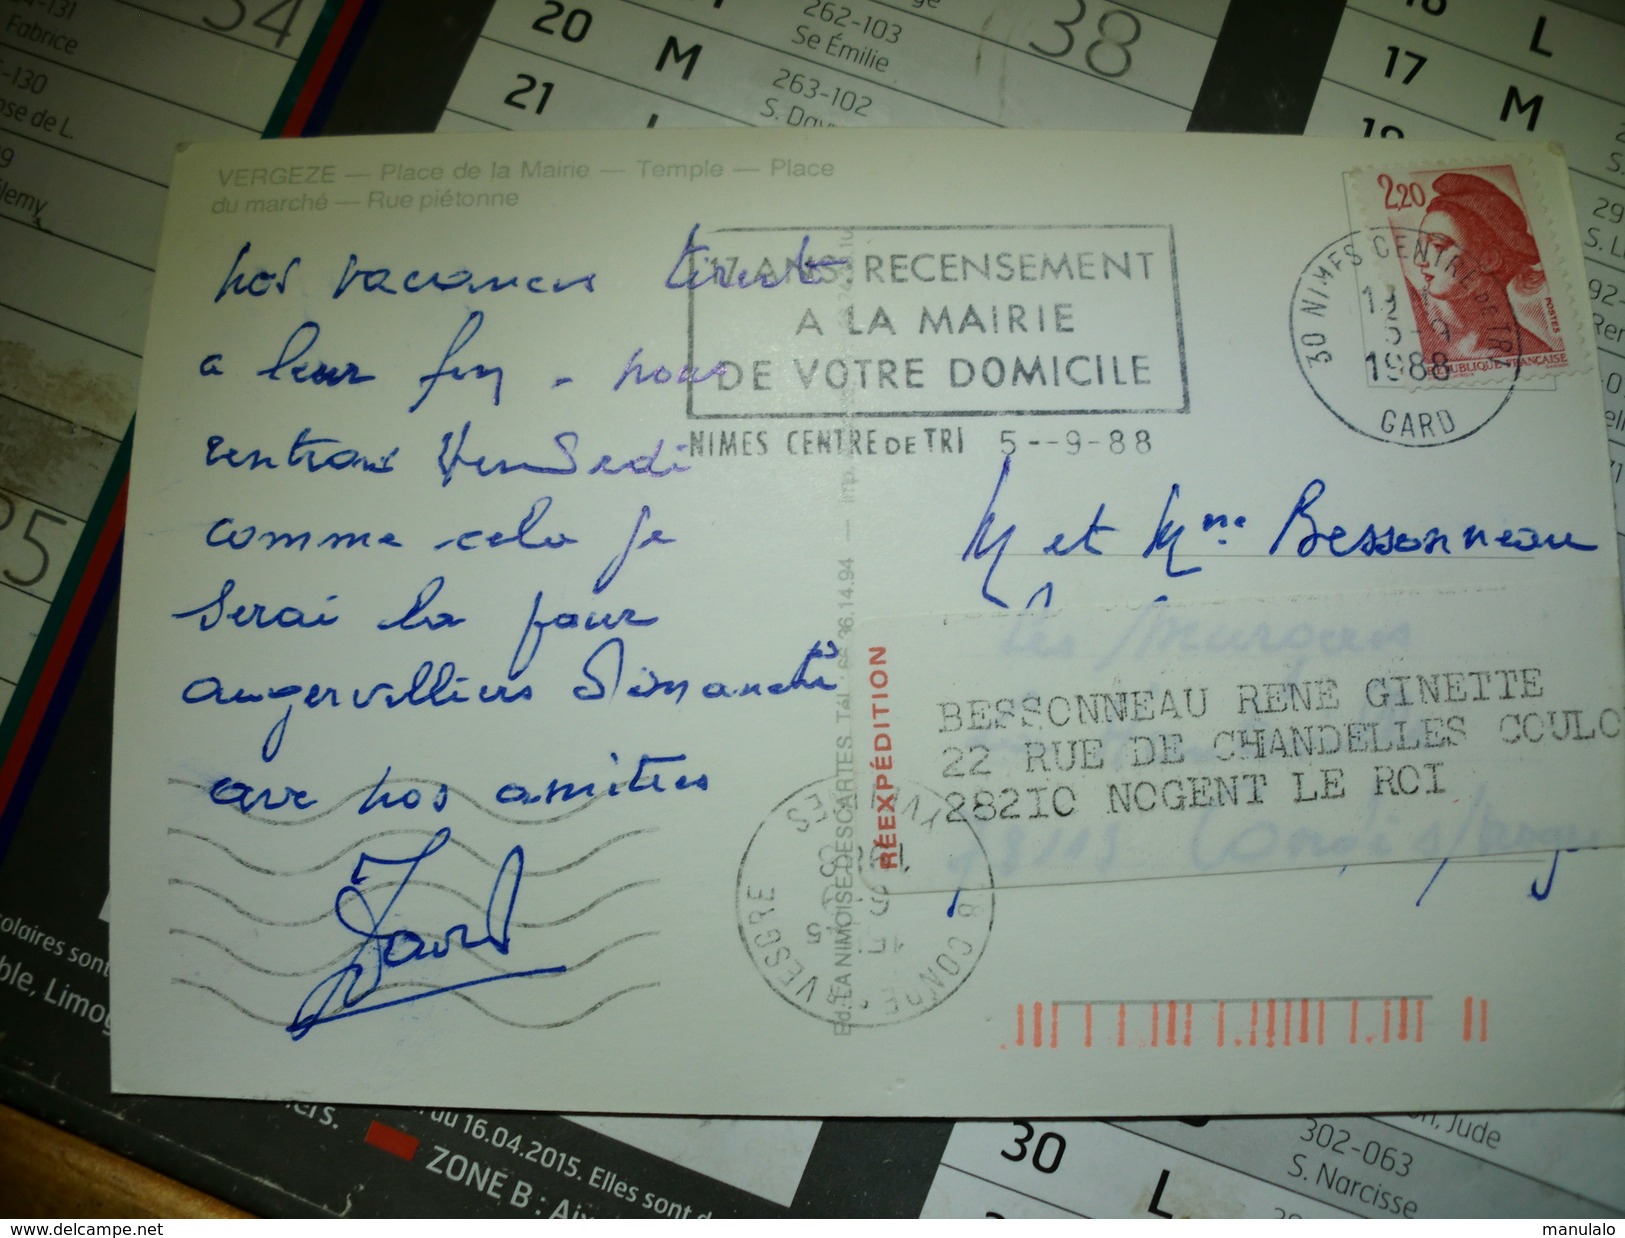 VERGEZE — Place de la Mairie — Temple — Place
du marché — Rue piétonne
nos vacances tirent
a leur fin - nous
rentrons Vendredi
comme cela je
serai la pour
angervilliers Dimanche
avec nos amitiés
17 ANS RECENSEMENT
A LA MAIRIE
DE VOTRE DOMICILE
NIMES CENTRE DE TRI 5--9-88
2,20
POSTES
REPUBLIQUE FRANCAISE
30 NIMES CENTRE DE TRI
5-9
1988
GARD
M et Mme Bessonneau
Les
RÉEXPÉDITION
BESSONNEAU RENE GINETTE
22 RUE DE CHANDELLES COULO
28210 NOGENT LE ROI
Ed. LA NIMOISE DES CARTES
34
Fabrice
-130
ose de L.
35
20
M
21
262-103
Se Émilie
263-102
38
16
L
17
M
29
92-
30
L
302-063
S. Narcisse
Jude
du 16.04.2015. Elles sont d
ZONE B : Aix
colaires sont
ble, Limog
manulalo
www.delcampe.net